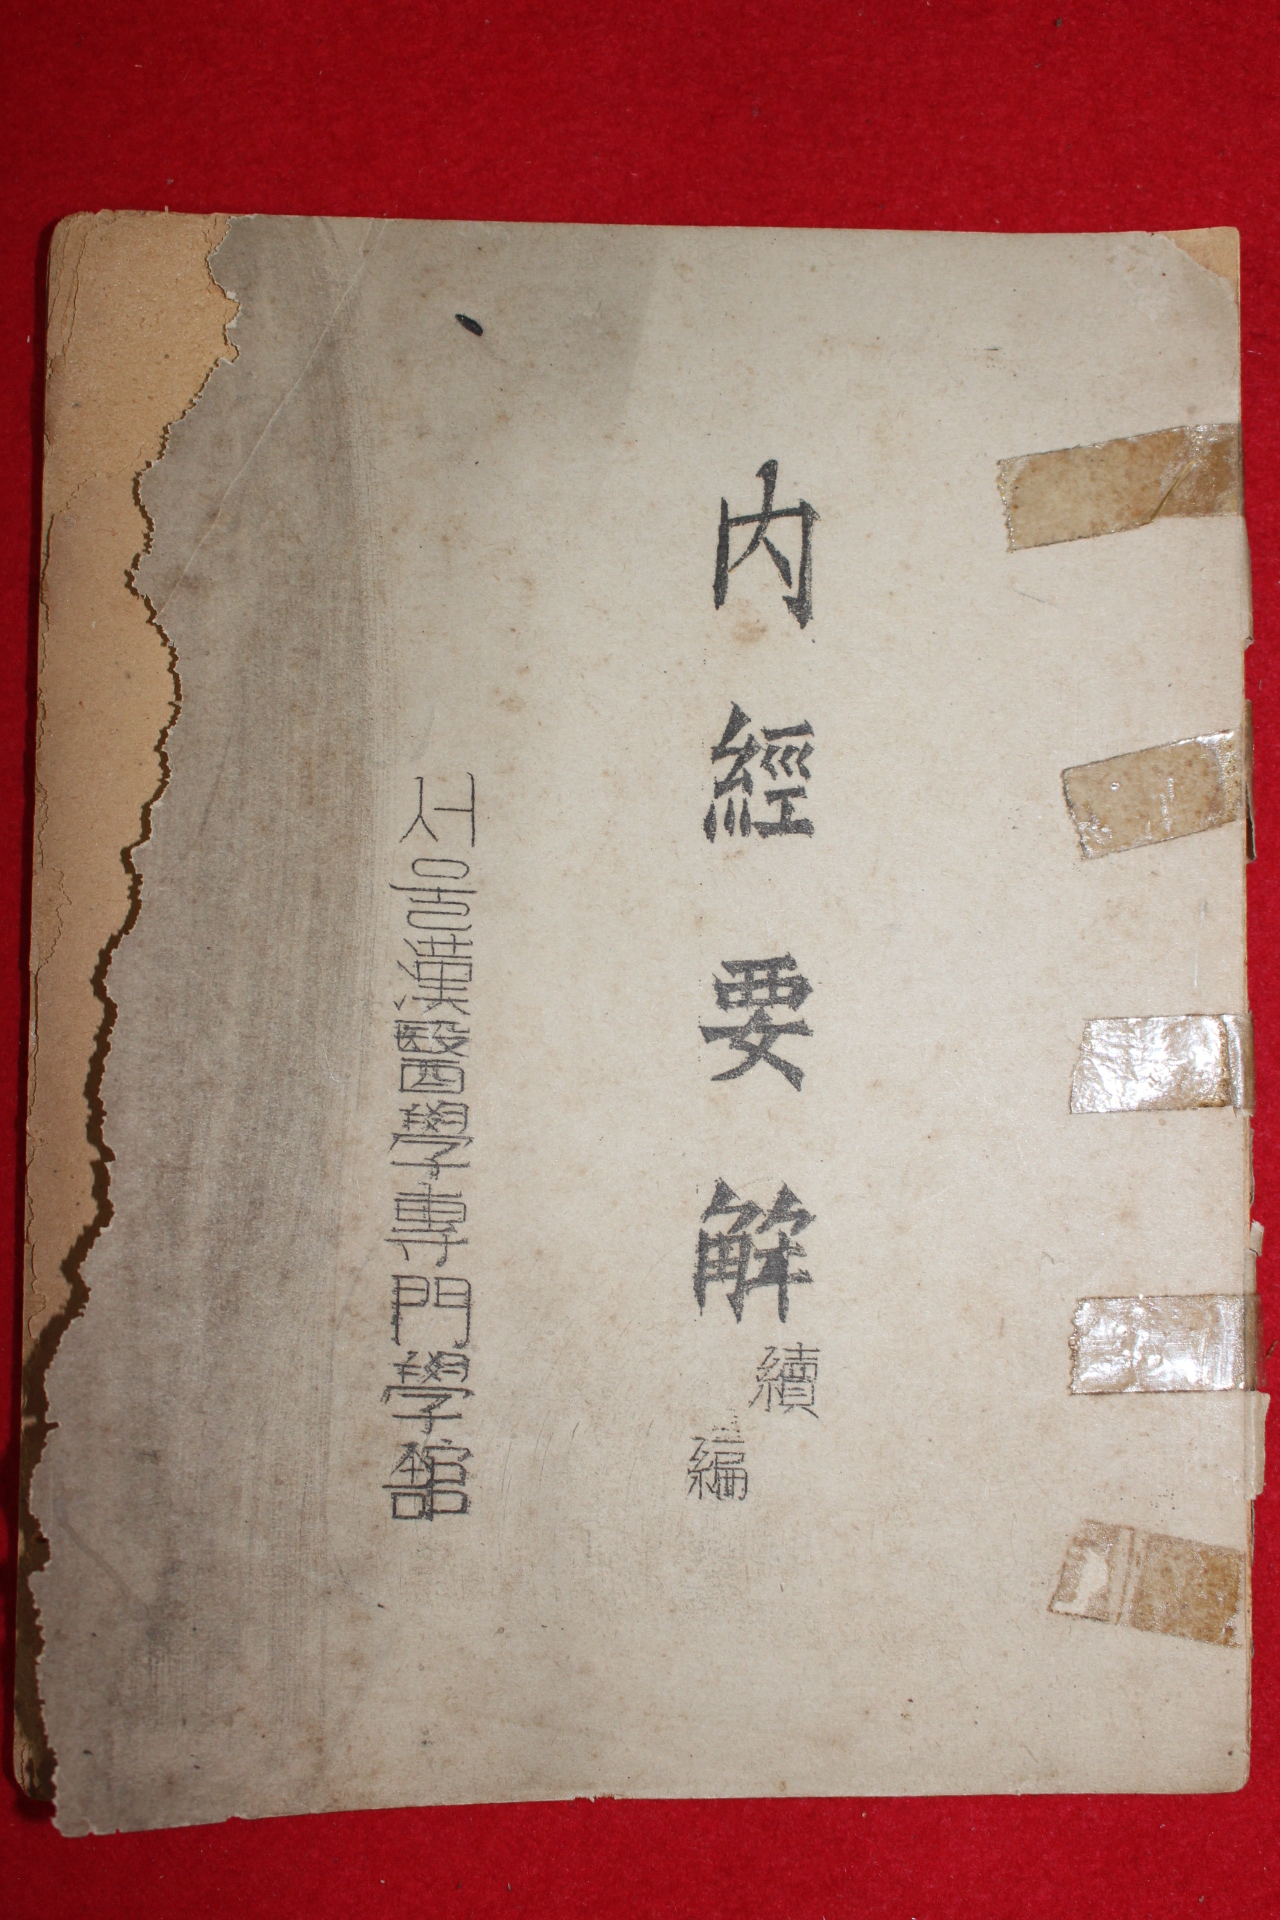 內經要解
續編
서울漢醫學專門學館